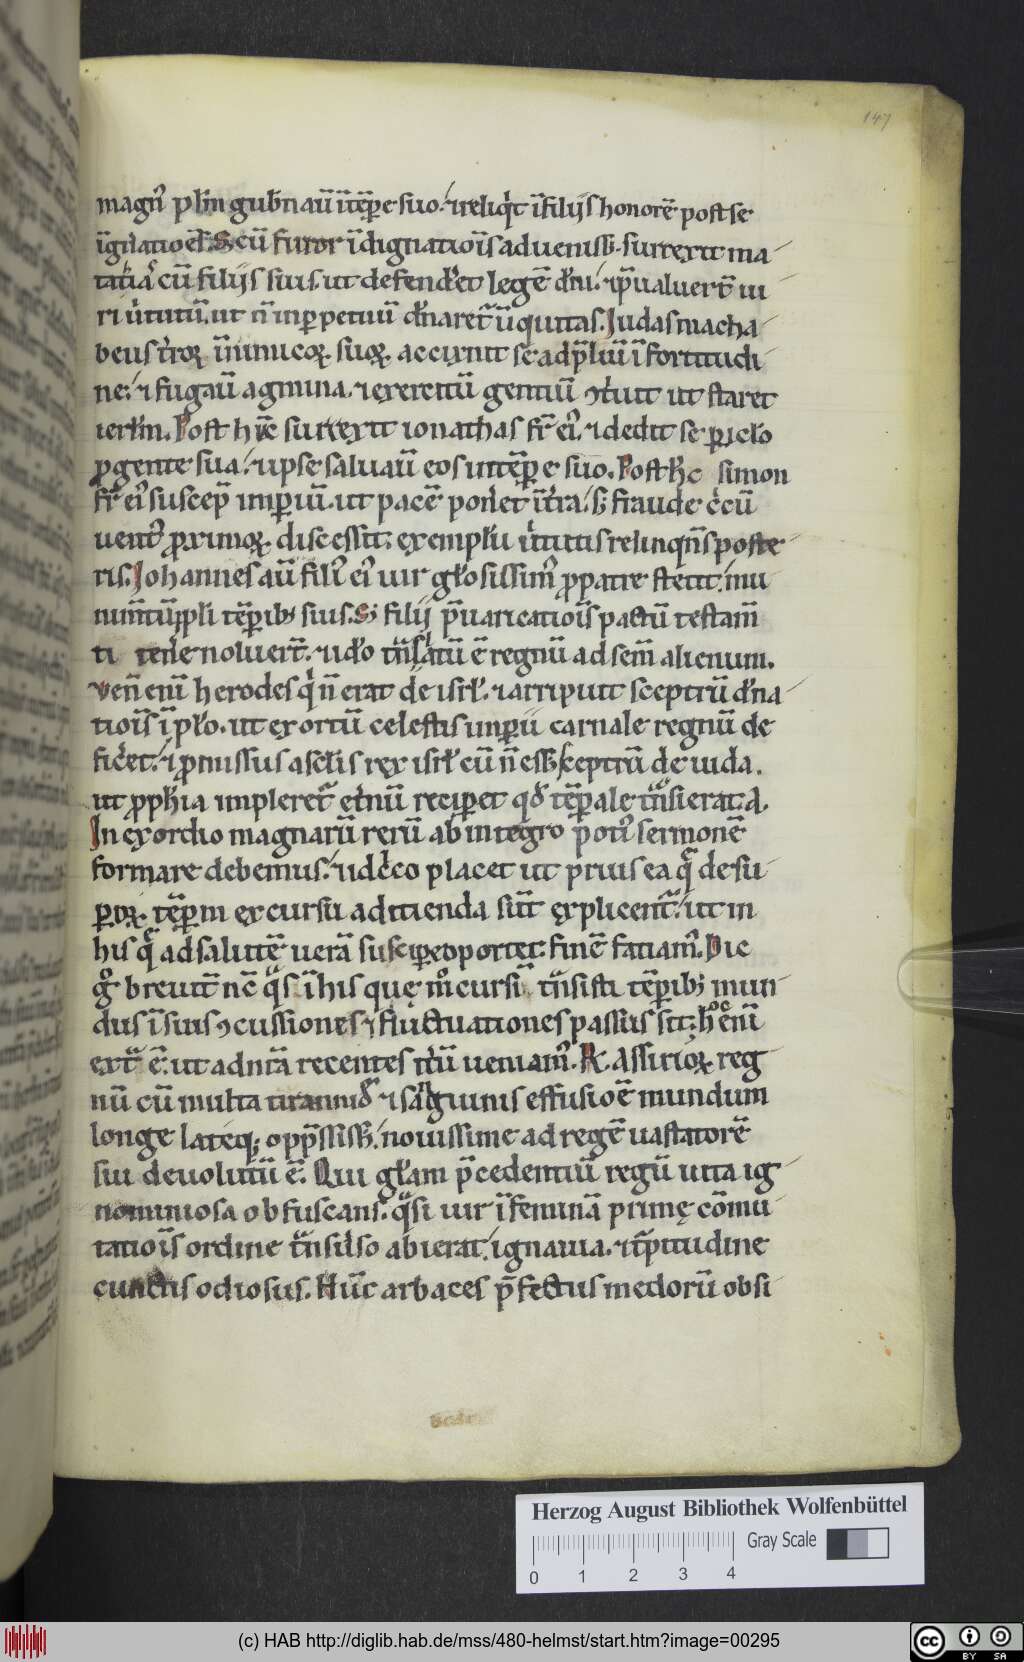 147
magnꝰ pplm gubnauit ī tēpꝑe suo. ⁊ reliqͥt ī filiis honorē post se
cū furor īdignatiōis aduenisset. surrexit ma
tatiaˢ cū filiis suis. ut defendret legē dnī. ⁊ p̄ualuerᵗ ui
ri ūtutū. ut n̄ in ꝑpetuū dn̄aretᷣ īiquitas. Iudas macha
beus īimicoꝝ suoꝝ. accixit se ad p̄liū ī fortitudi
ne. ⁊ fugauit agmina. ⁊ exercitū gentiū ꝯtriuit ut staret
ierlm̄. Post hūc surrexit ionathas fr̄ eiꝰ. ⁊ dedit se ꝑiclo
ꝓ gente sua. ⁊ ipse saluauit eos in tēpꝑe suo. Post hc̄ simon
fr̄ eiꝰ suscepit impiū. ut pacē poneret ī trā. sꝫ fraude cͥcū
uentꝰ ꝓximoꝝ. discessit. exemplū uͥtutis relinqn̄s poste
ris. Iohannes aū filiꝰ eiꝰ uir gl̄osissimꝰ ꝓ patre stetit. mu
nimtū ppli tēꝑibꝫ suis. Sꝫ filii p̄uaricatiōis pactū testam̄
ti tenere noluerᵗ. ⁊ ido tn̄slatū ē regnū ad sem̄ alienum.
Ven̄ enī herodes qͥ n̄ erat de isrl̄. ⁊ arripuit sceptrū dn̄a
tiōis ī pplo. ut ex ortū celestis impii carnale regnū de
ficͥet. ⁊ ꝓmissus a sclis rex isrl̄ cū n̄ esset sceptrū de iuda.
ut ꝓphia impleretᷣ et̄nū reciperet qd̓ tēꝑale tn̄sierat.
In exordio magnarū rerū ab integro potiꝰ sermonē
formare debemus. ⁊ idcͥco placet ut prius ea q̄ de su
ꝑioꝝ. tēꝑm excursu adicienda sūt explicentᷣ. ut in
his q̄ ad salutē uerā suscipe oportet. finē faciamꝰ. Dic
gͦ breuit̄ nc̄ qͣs ī his quę mͦ cursī tn̄sisti tēꝑibꝫ mun
dus ī suis ꝯcussiones ⁊ fluctuationes passus sit. hͦ enī
extᷣ ē. ut ad nr̄a recentes itͥū ueniamꝰ. R. Assirioꝝ reg
nū cū multa tirannid̓ ⁊ sāguinis effusiōe mundum
longe lateqꝫ opp̄ssissꝫ. nouissime ad regē uastatorē
sui deuolutū ē. Qui gl̄am p̄cedentiū regū uita ig
nominiosa obfuscans. qͣsi uir ī feminā primę cōmu
tatiōis ordine tn̄siliso abierat. ignauia. ⁊ tᷣpitudine
cunctis odiosus. Hūc arbaces p̄fectus medorū obsi
Herzog August Bibliothek Wolfenbüttel
Gray Scale
0 1 2 3 4
(c) HAB http://diglib.hab.de/mss/480-helmst/start.htm?image=00295
cc BY SA